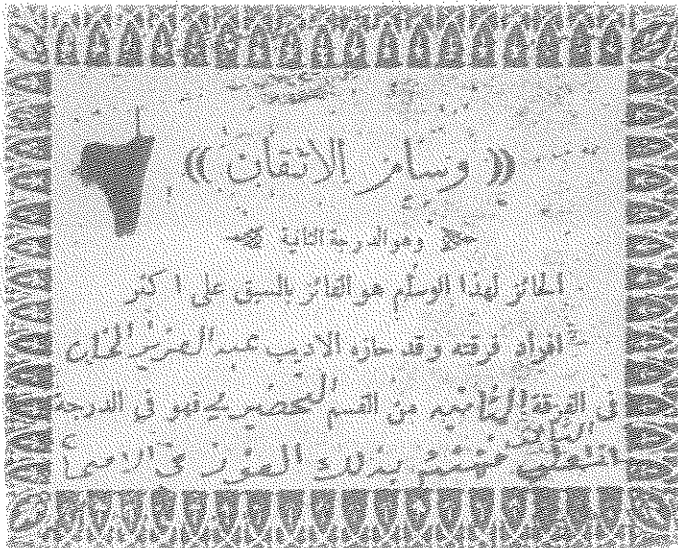 (( وسام الاتقان ))
وهو الدرجة الثانية
الحائز لهذا الوسام هو الفائز بالسبق على اكثر
افراد فرقته وقد حازه الاديب عبد العزيز
فى الفرقة الثامنيه من القسم التحضيري فهو فى الدرجة
الثانية
بذلك الفوز فى